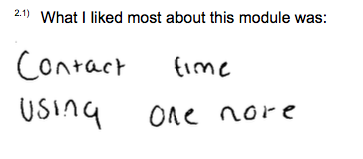 2.1) What I liked most about this module was:
Contact time
Using one note